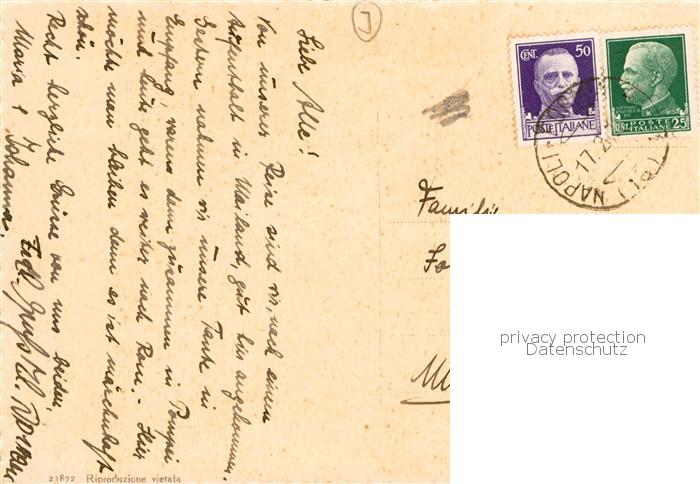 Liebe Alle!
Von unserer Reise sind wir, nach einem
Aufenthalt in Mailand, gut hier angekommen.
Gestern nahmen wir unsere Tante in
Empfang, waren dann zusammen in Pompei
und heute geht es weiter nach Rom. - Hier
möcht man bleiben denn es ist märchenhaft
schön.
Recht herzliche Grüsse von uns beiden
Maria & Johanna.
Frdl. Gruß
CENT. 50
POSTE ITALIANE
POSTE
CENT. ITALIANE 25
NAPOLI
17.2
Familie
privacy protection
Datenschutz
23872 Riproduzione vietata